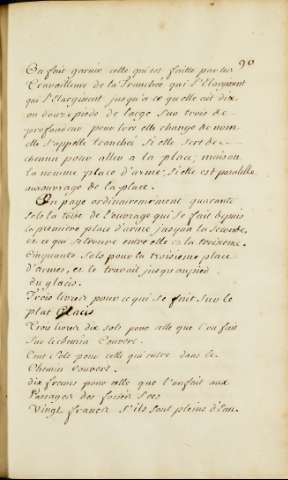 90
On fait garnir celle qui est faitte par les
Travailleurs de la Tranchée qui l'Elargissent
qui l'Elargissent jusqu'a ce qu'elle ait dix
ou douze pieds de large sur trois de
profondeur pour lors elle change de nom
elle s'appelle tranchée si elle sert de
chemin pour aller a la place, mais on
la nomme place d'arme, si elle est parallele
au ouvrage de la place.
On paye ordinairement quarante
sols la toise de l'ouvrage qui se fait depuis
la premiere place d'arme jusqu'a la seconde,
et ce qui se trouve entre elle et la troisieme.
Cinquante sols pour la troisieme place
d'armes, et le travail jusqu'au pied
du glacis.
Trois livres pour ce qui se fait sur le
plat Glacis
Trois livres dix sols pour celle que l'on fait
sur le chemin Couvert.
Cent sols pour celle qui entre dans le
Chemin Couvert.
dix francs pour celle que l'on fait aux
Passages des fossés secs
Vingt francs s'ils sont pleins d'Eau.